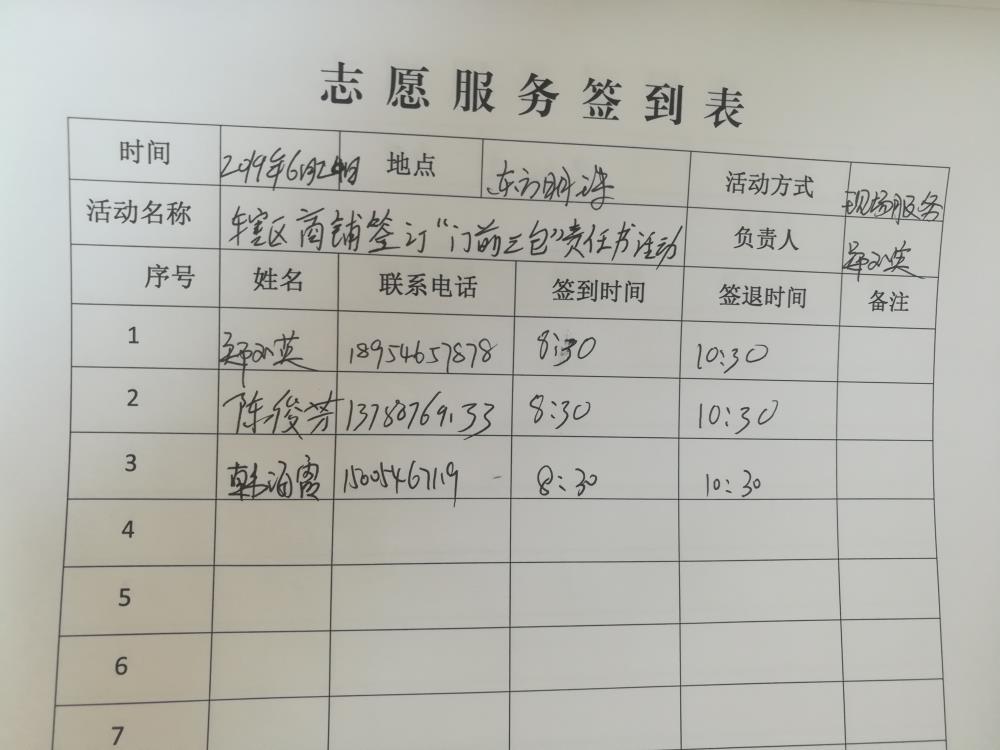 志愿服务签到表
时间 2019年6月24日 地点 东方明珠 活动方式 现场服务
活动名称 辖区商铺签订“门前三包”责任书活动 负责人 郑小英
序号 姓名 联系电话 签到时间 签退时间 备注
1 郑小英 18954657878 8:30 10:30
2 陈俊芳 13780769133 8:30 10:30
3 韩海霞 15005467119 8:30 10:30
4
5
6
7